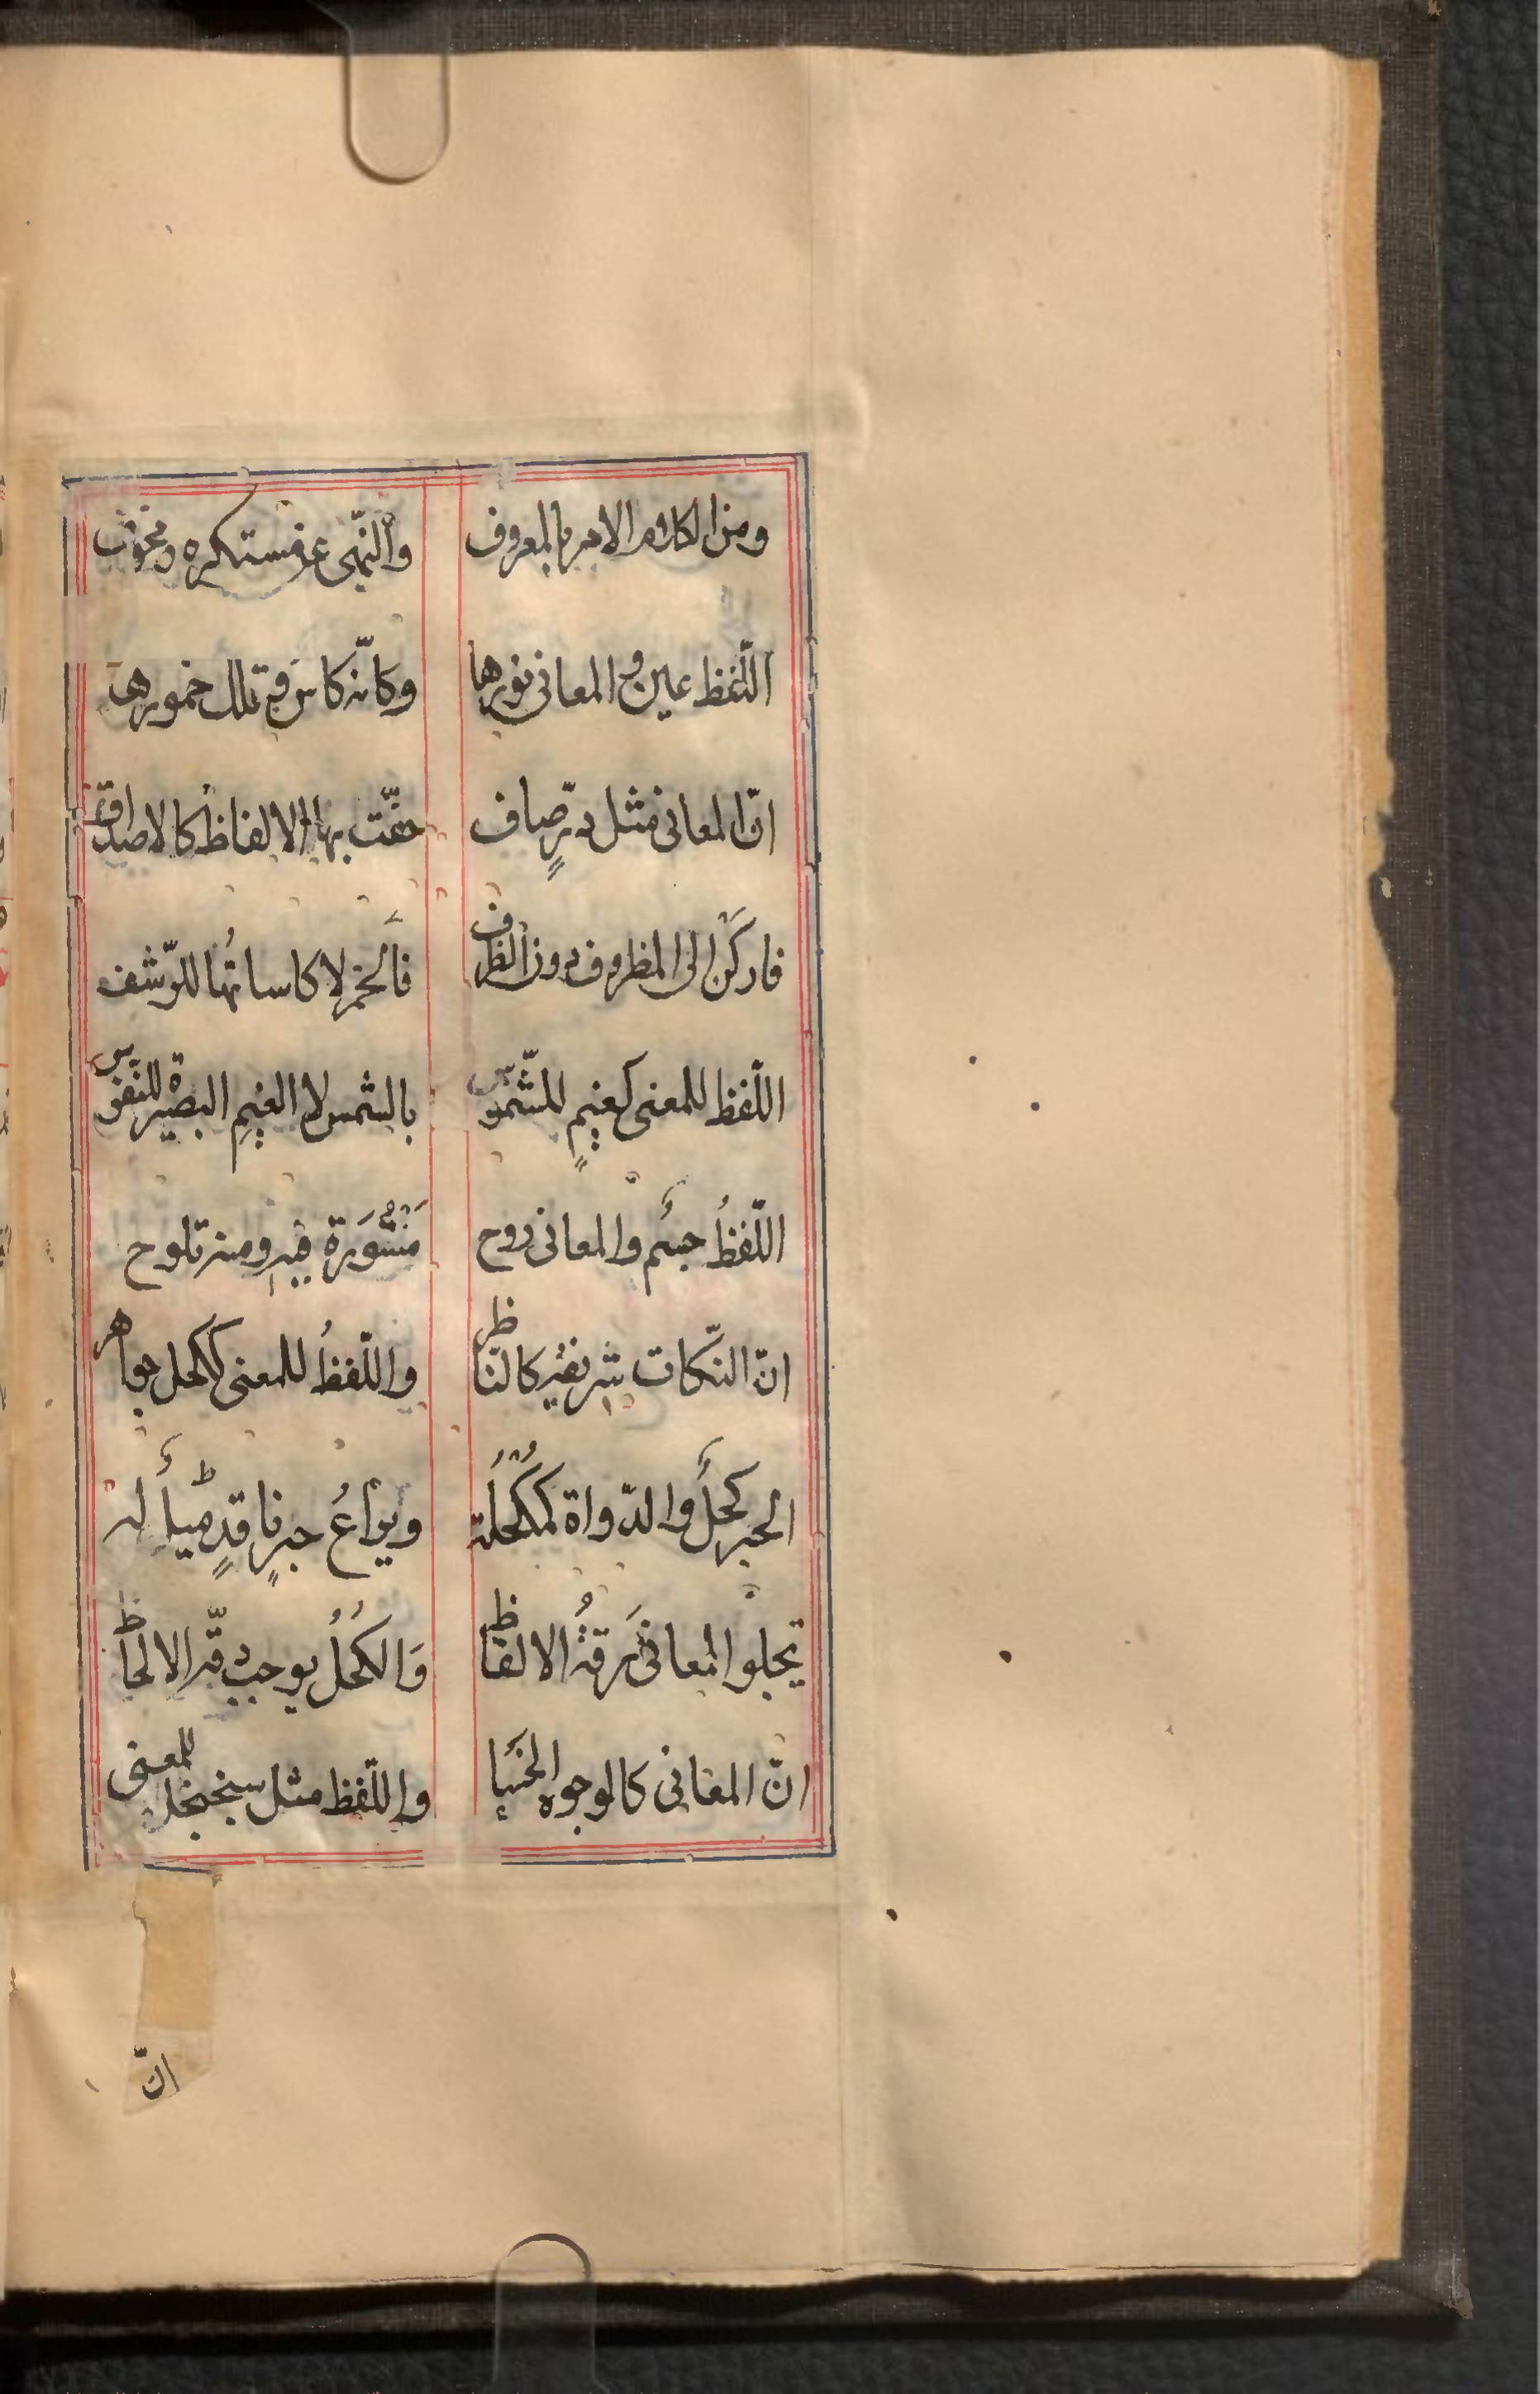 ومن الكلام الامر بالمعروف والنّهى عن مستكره ومخوف
اللّفظ عين والمعانى نورها وكانّه كاس وتلك خمورها
انّ المعانى مثل درٍّ صاف حفّت بها الالفاظ كالاصداف
فاركَن الى المظروف دون الظرف فالخمر لا كاساتُها للرّشف
اللّفظ للمعنى كغيمٍ للشّموس بالشمس لا الغيمِ البصيرة للنفوس
اللّفظُ جسم والمعانى روح مَنشُورَة فيه ومنه تلوح
انّ النّكات شريفة كالنّاظر واللّفظُ للمعنى ككحل جواهر
الحبر كحلٌ والدّواة كمُكحُلُة ويراعُ حبرٍ ناقدٍ ميلٌ له
تجلوا المعانى رقةُ الالفاظ وَالكُحلُ يوجب دقّة الالحاظ
انّ المعانى كالوجوه واللّفظ مثل سجنجل للمعنى
انّ